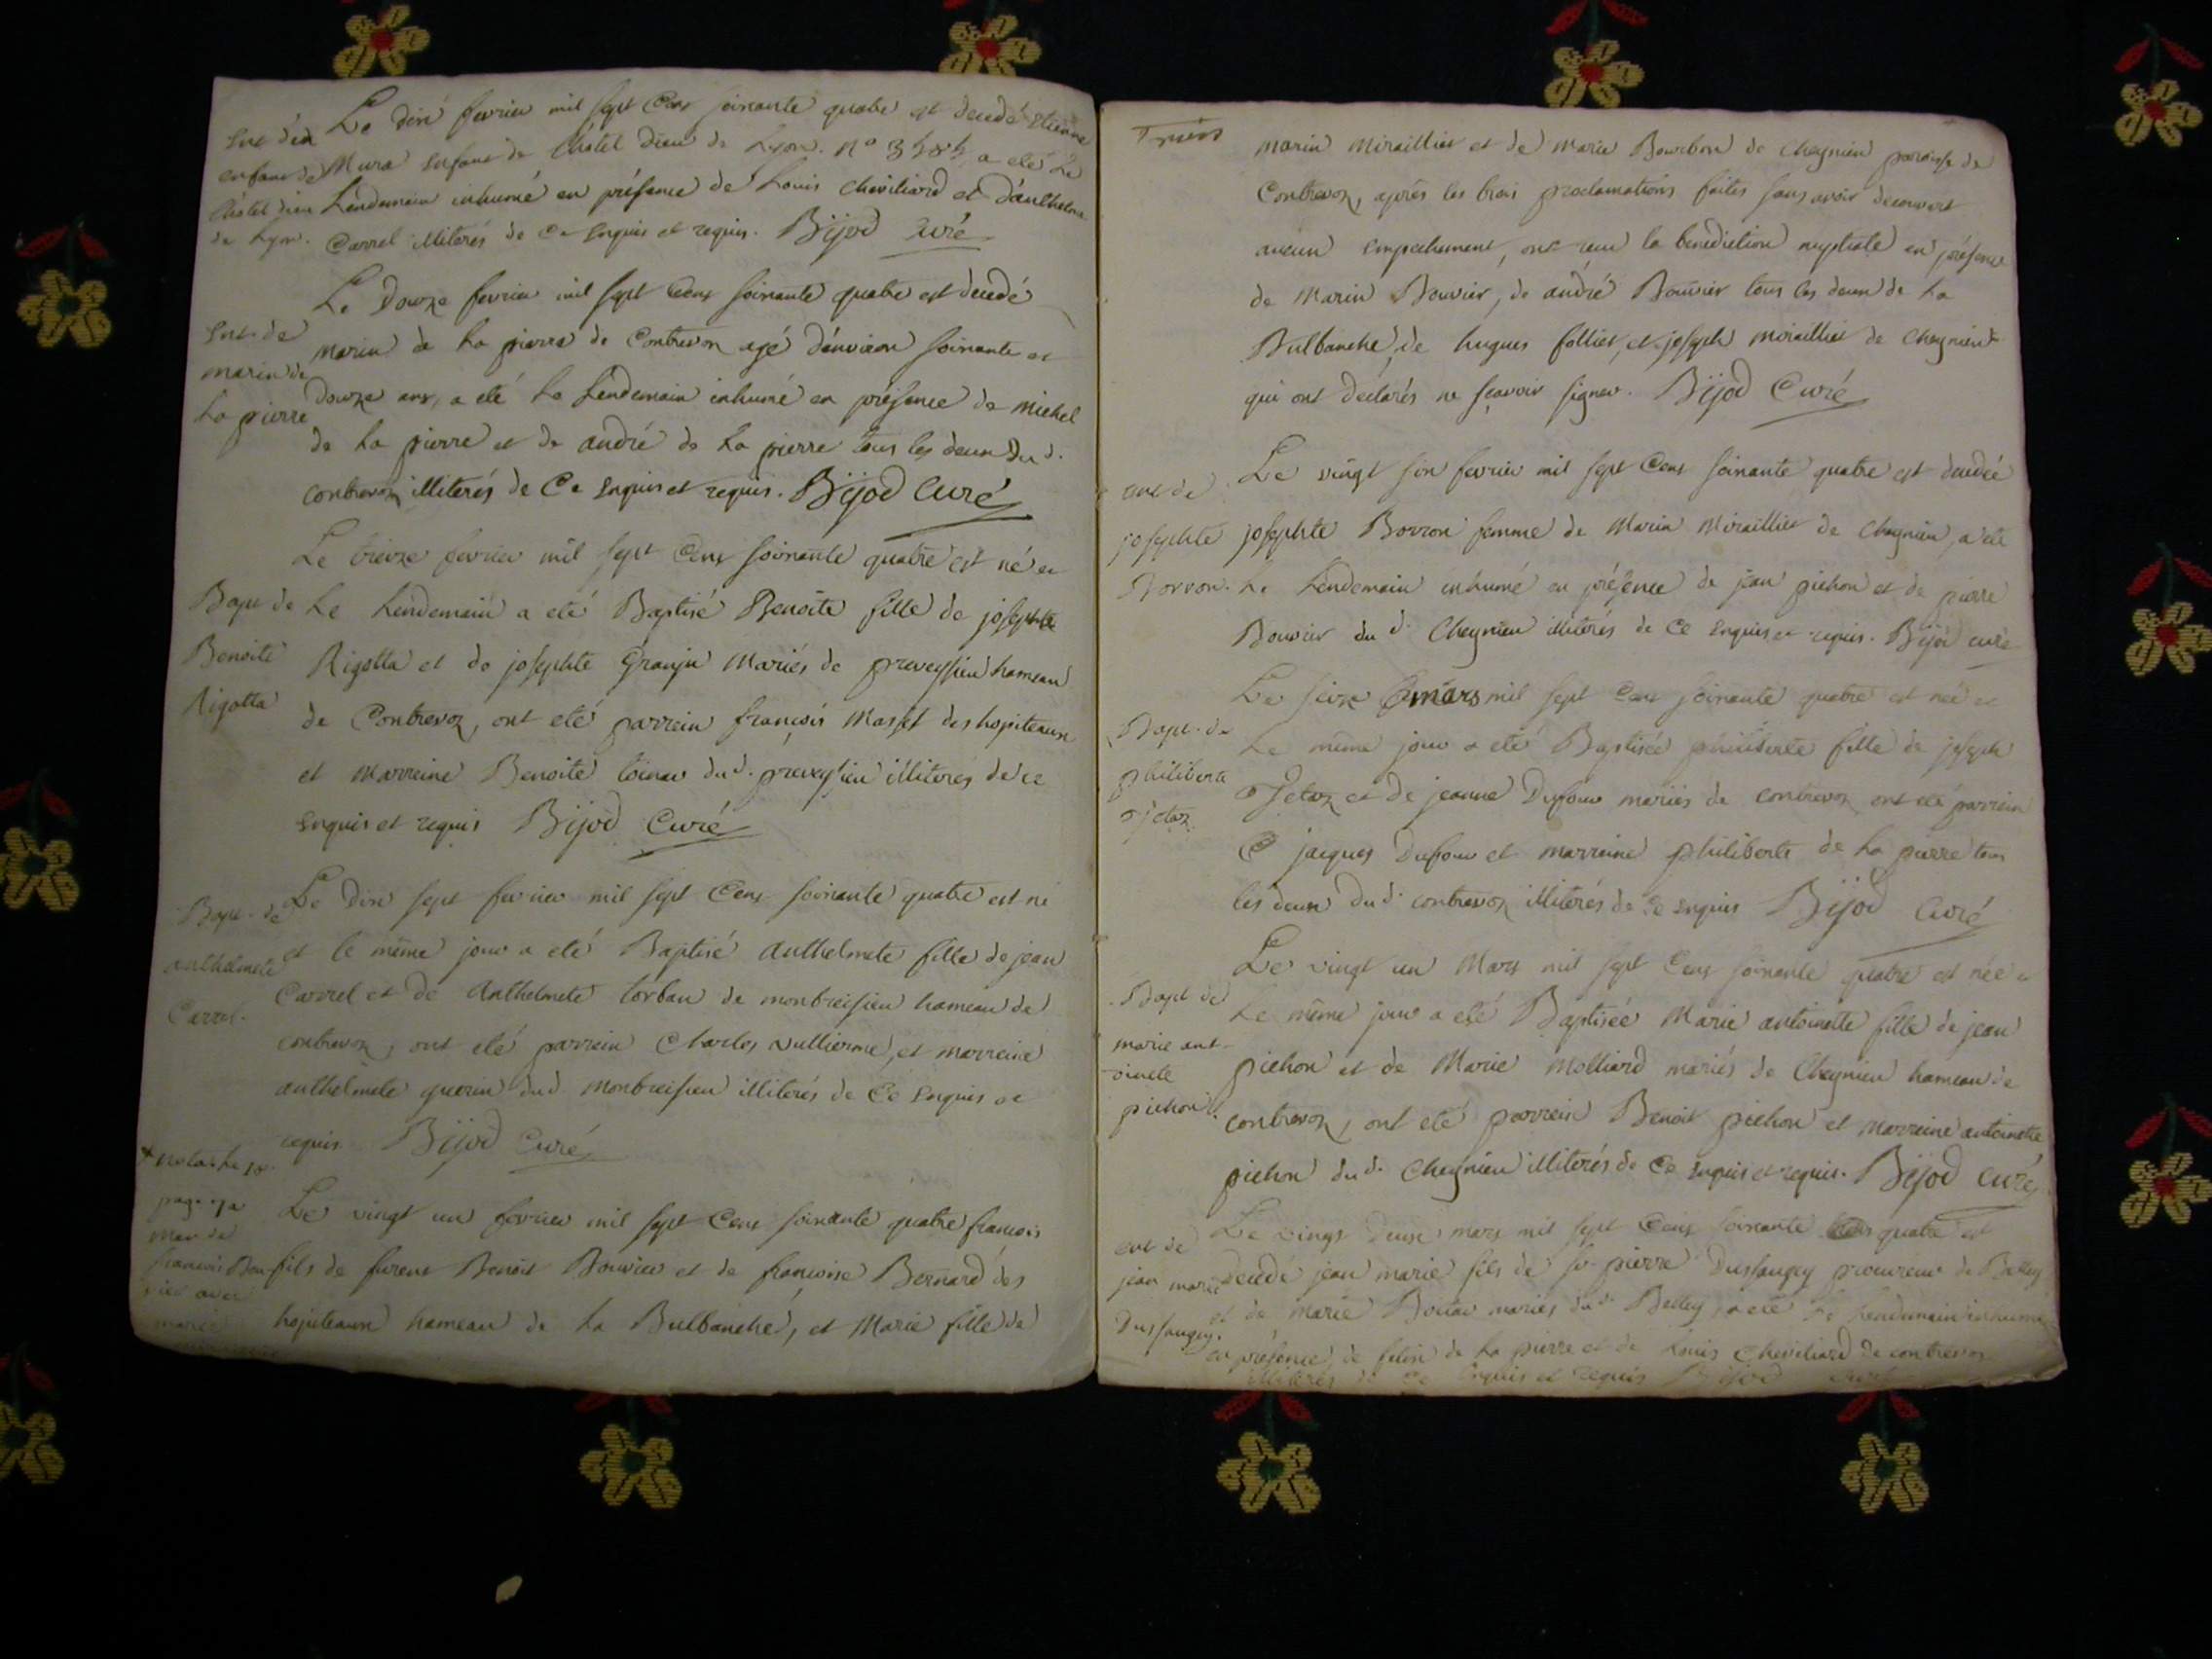 Le dixé fevrier mil sept Cens soixante quatre est decedé Etienne
Ent d'un
enfant de
l'hotel dieu
de Lyon.
Mura enfant de l'hotel dieu de Lyon. N° a eté Le
Lendemain inhumé en présance de Louis Chevilliard et d'anthelme
Carrel illiterés de Ce Enquis et requis. Bijod Curé
Le Douze fevrier mil sept Cens soixante quatre est decedé
Ent. de
marin de
La pierre
marin de La pierre de Contrevoz agé d'environ soixante et
Douze ans, a eté Le Lendemain inhumé en présence de michel
de La pierre et de andré de La pierre tous les deux Du d.
contrevoz illiterés de Ce Enquis et requis. Bijod Curé
Le treize fevrier mil sept Cens soixante quatre est né et
Bapt de
Benoite
Rigotta
Le Lendemain a eté Baptisé Benoite fille de josephte
Rigotta et de josephte Granju Mariés de preveyssieu hameau
de Contrevoz, ont eté parrein françois Masset des hopiteaux
et Marreine Benoite du d. preveyssieu illiterés de ce
Enquis et requis Bijod Curé
Le Dix sept fevrier mil sept Cens soixante quatre est né
Bapt. de
anthelmete
Carrel.
et le même jour a eté Baptisé anthelmete fille de jean
Carrel et de Anthelmete torbau de montbreisieu hameau de
contrevoz, ont eté parrein Charles vullierme, et marreine
anthelmete guerin dud montbreisieu illiterés de Ce Enquis et
requis Bijod Curé
+ nota La 18.
page
Mar de
francois Bou
vier avec
marie
Le vingt un fevrier mil sept Cens soixante quatre françois
fils de furent Benoit Bouvier et de françoise Bernard des
hopiteaux hameau de La Bulbanche, et Marie fille de
marin Miraillier et de Marie Bourbon de Cheynieu paroisse de
Contrevoz, apres les trois proclamations faites sans avoir decouvert
aucun Empechement, ont recu la benediction nuptiale en présence
de Marin Bouvier, de andré Bouvier tous les deux de La
Bulbanche, de hugues follier, et joseph miraillier de Cheynieu
qui ont déclarés ne sçavoir signer. Bijod Curé
Le vingt six fevrier mil sept Cens soixante quatre est decedée
ent de
josephte
Borron.
josephte Borron femme de Marin Miraillier de Cheynieu, a eté
Le Lendemain inhumé en présence de jean pichon et de pierre
Bouvier du d. Cheynieu illiterés de Ce Enquis et requis. Bijod curé
Le seize mars mil sept Cens soixante quatre est née et
Bapt. de
philiberte
jetaz
Le même jour a eté Baptisée philiberte fille de joseph
jetaz et de jeanne Dufour mariés de contrevoz ont eté parrein
jacques Dufour et marreine philiberte de La pierre tous
les deux du d. contrevoz illiterés de Ce Enquis Bijod Curé
Le vingt un Mars mil sept Cens soixante quatre est née et
Bapt de
marie ant-
oinete
pichon.
Le même jour a eté Baptisée Marie antoinette fille de jean
pichon et de Marie Molliard mariés de Cheynieu hameau de
contrevoz, ont eté parrein Benoit pichon et marreine antoinette
pichon du d. Cheynieu illiterés de Ce Enquis et requis. Bijod curé
Le vingt Deux mars mil sept Cens soixante quatre est
ent de
jean marie
Dussaugey.
Decedé jean marie fils de sr pierre Dussaugey procureur de Belley
et de marie mariés du d. Belley, a eté Le Lendemain inhumé
en présence de de La pierre et de Louis Chevilliard de contrevoz
illiterés de Ce Enquis et requis Bijod curé